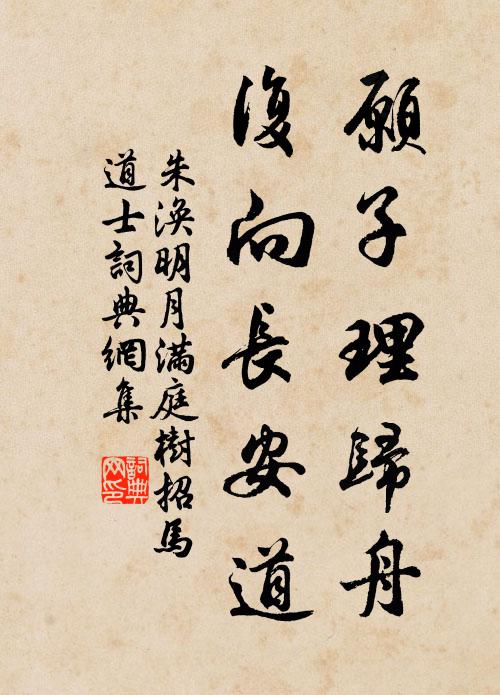 願子理歸舟
復向長安道
朱渙明月滿庭樹招馬
道士詞典網集
詞典網印